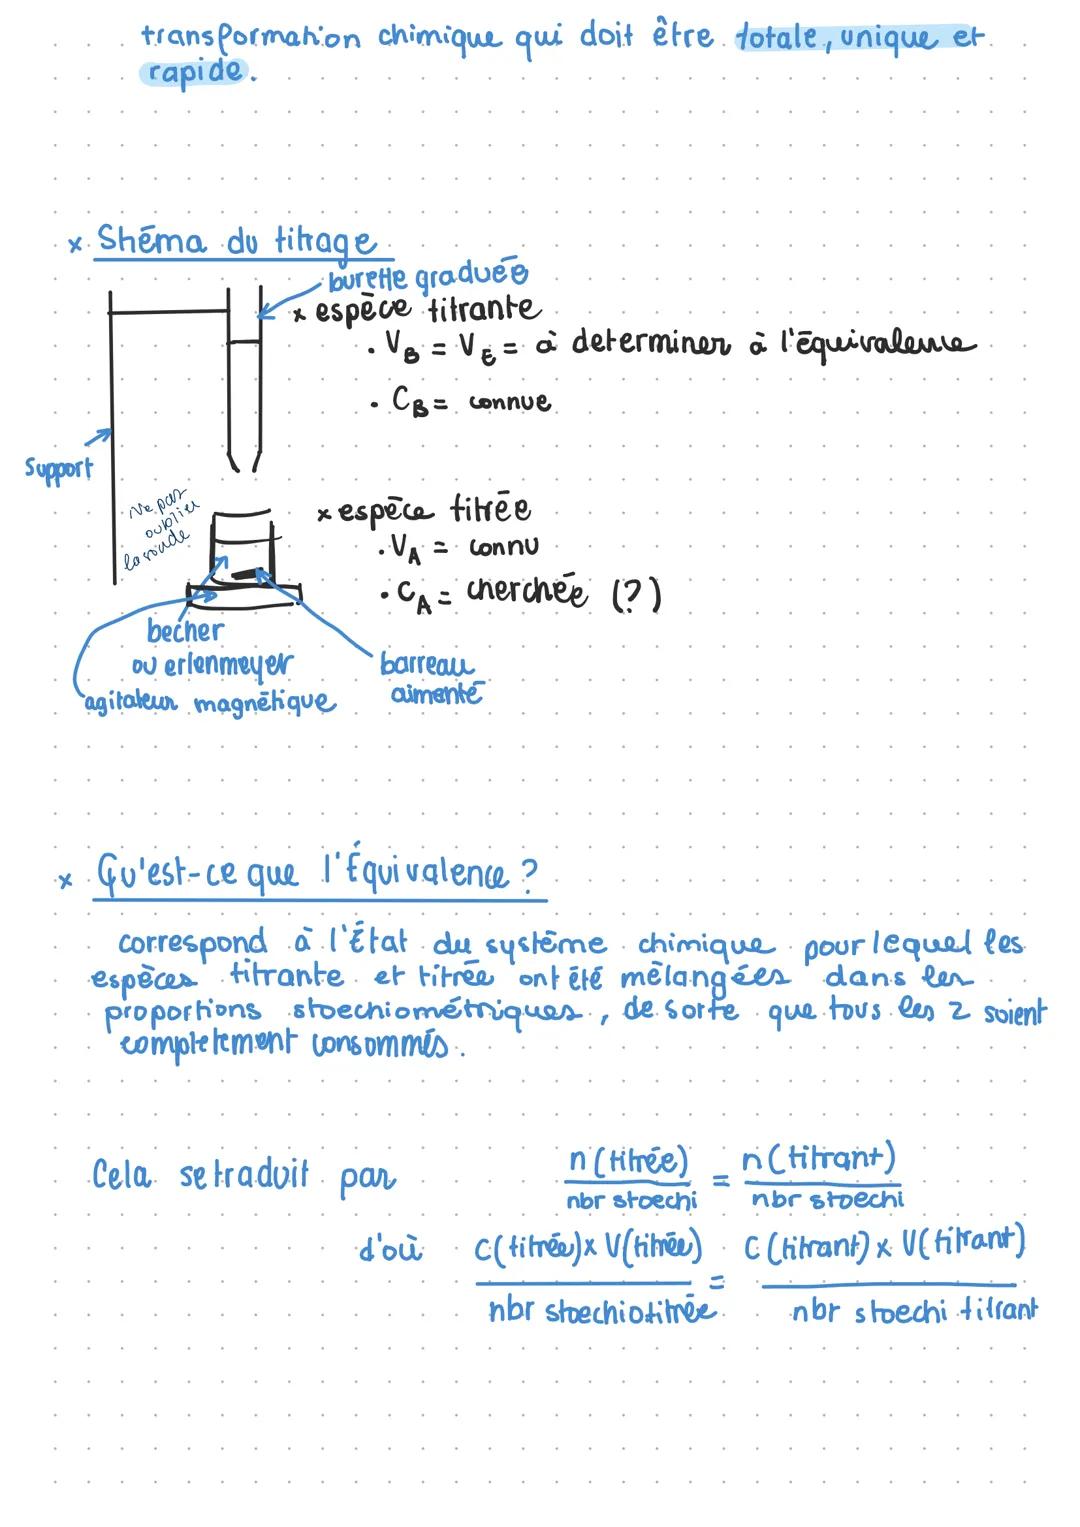 transformation chimique qui doit être totale, unique et
rapide.
x Shéma du titrage
burette graduée
x espèce titrante
. VB = VE = à determiner à l'équivalence
. CB = connue
Support
Ne pas
oublier
la sonde
x espèce titrée
. VA = connu
. CA = cherchée (?)
becher
ou erlenmeyer
agitateur magnétique
barreau
aimenté
x Qu'est-ce que l'Équivalence ?
correspond à l'État du système chimique pour lequel les
espèces titrante et titrée ont été mélangées dans les
proportions stoechiométriques, de sorte que tous les 2 soient
completement consommés.
Cela se traduit par n(titrée) / nbr stoechi = n(titrant) / nbr stoechi
d'où C(titrée) x V(titrée) / nbr stoechio titrée = C(titrant) x V(titrant) / nbr stoechi titrant